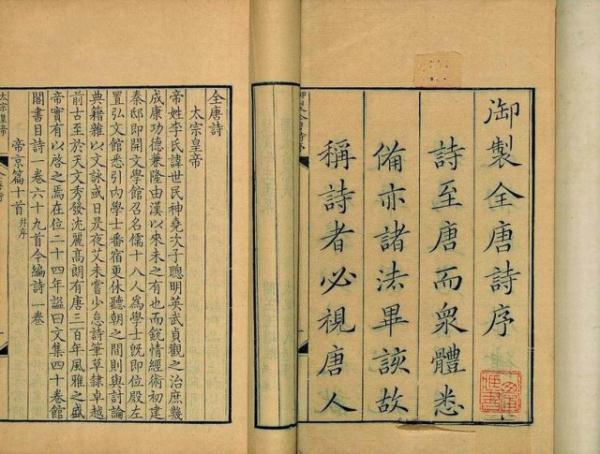 御製全唐詩序
詩至唐而衆體悉
備亦諸法畢該故
稱詩者必視唐人
全唐詩
太宗皇帝
帝姓李氏諱世民神堯次子聰明英武貞觀之治庶幾
成康功德兼隆由漢以來未之有也而銳情經術初建
秦邸即開文學館召名儒十八人爲學士既即位殿左
置弘文館悉引內學士番宿更休聽朝之間則與討論
典籍雜以文詠或日昃夜艾未嘗少怠詩筆草隸卓越
前古至於天文秀發沈麗高朗有唐三百年風雅之盛
帝實有以啓之焉在位二十四年諡曰文集四十卷館
閣書目詩一卷六十九首今編詩一卷
帝京篇十首 并序
太宗皇帝